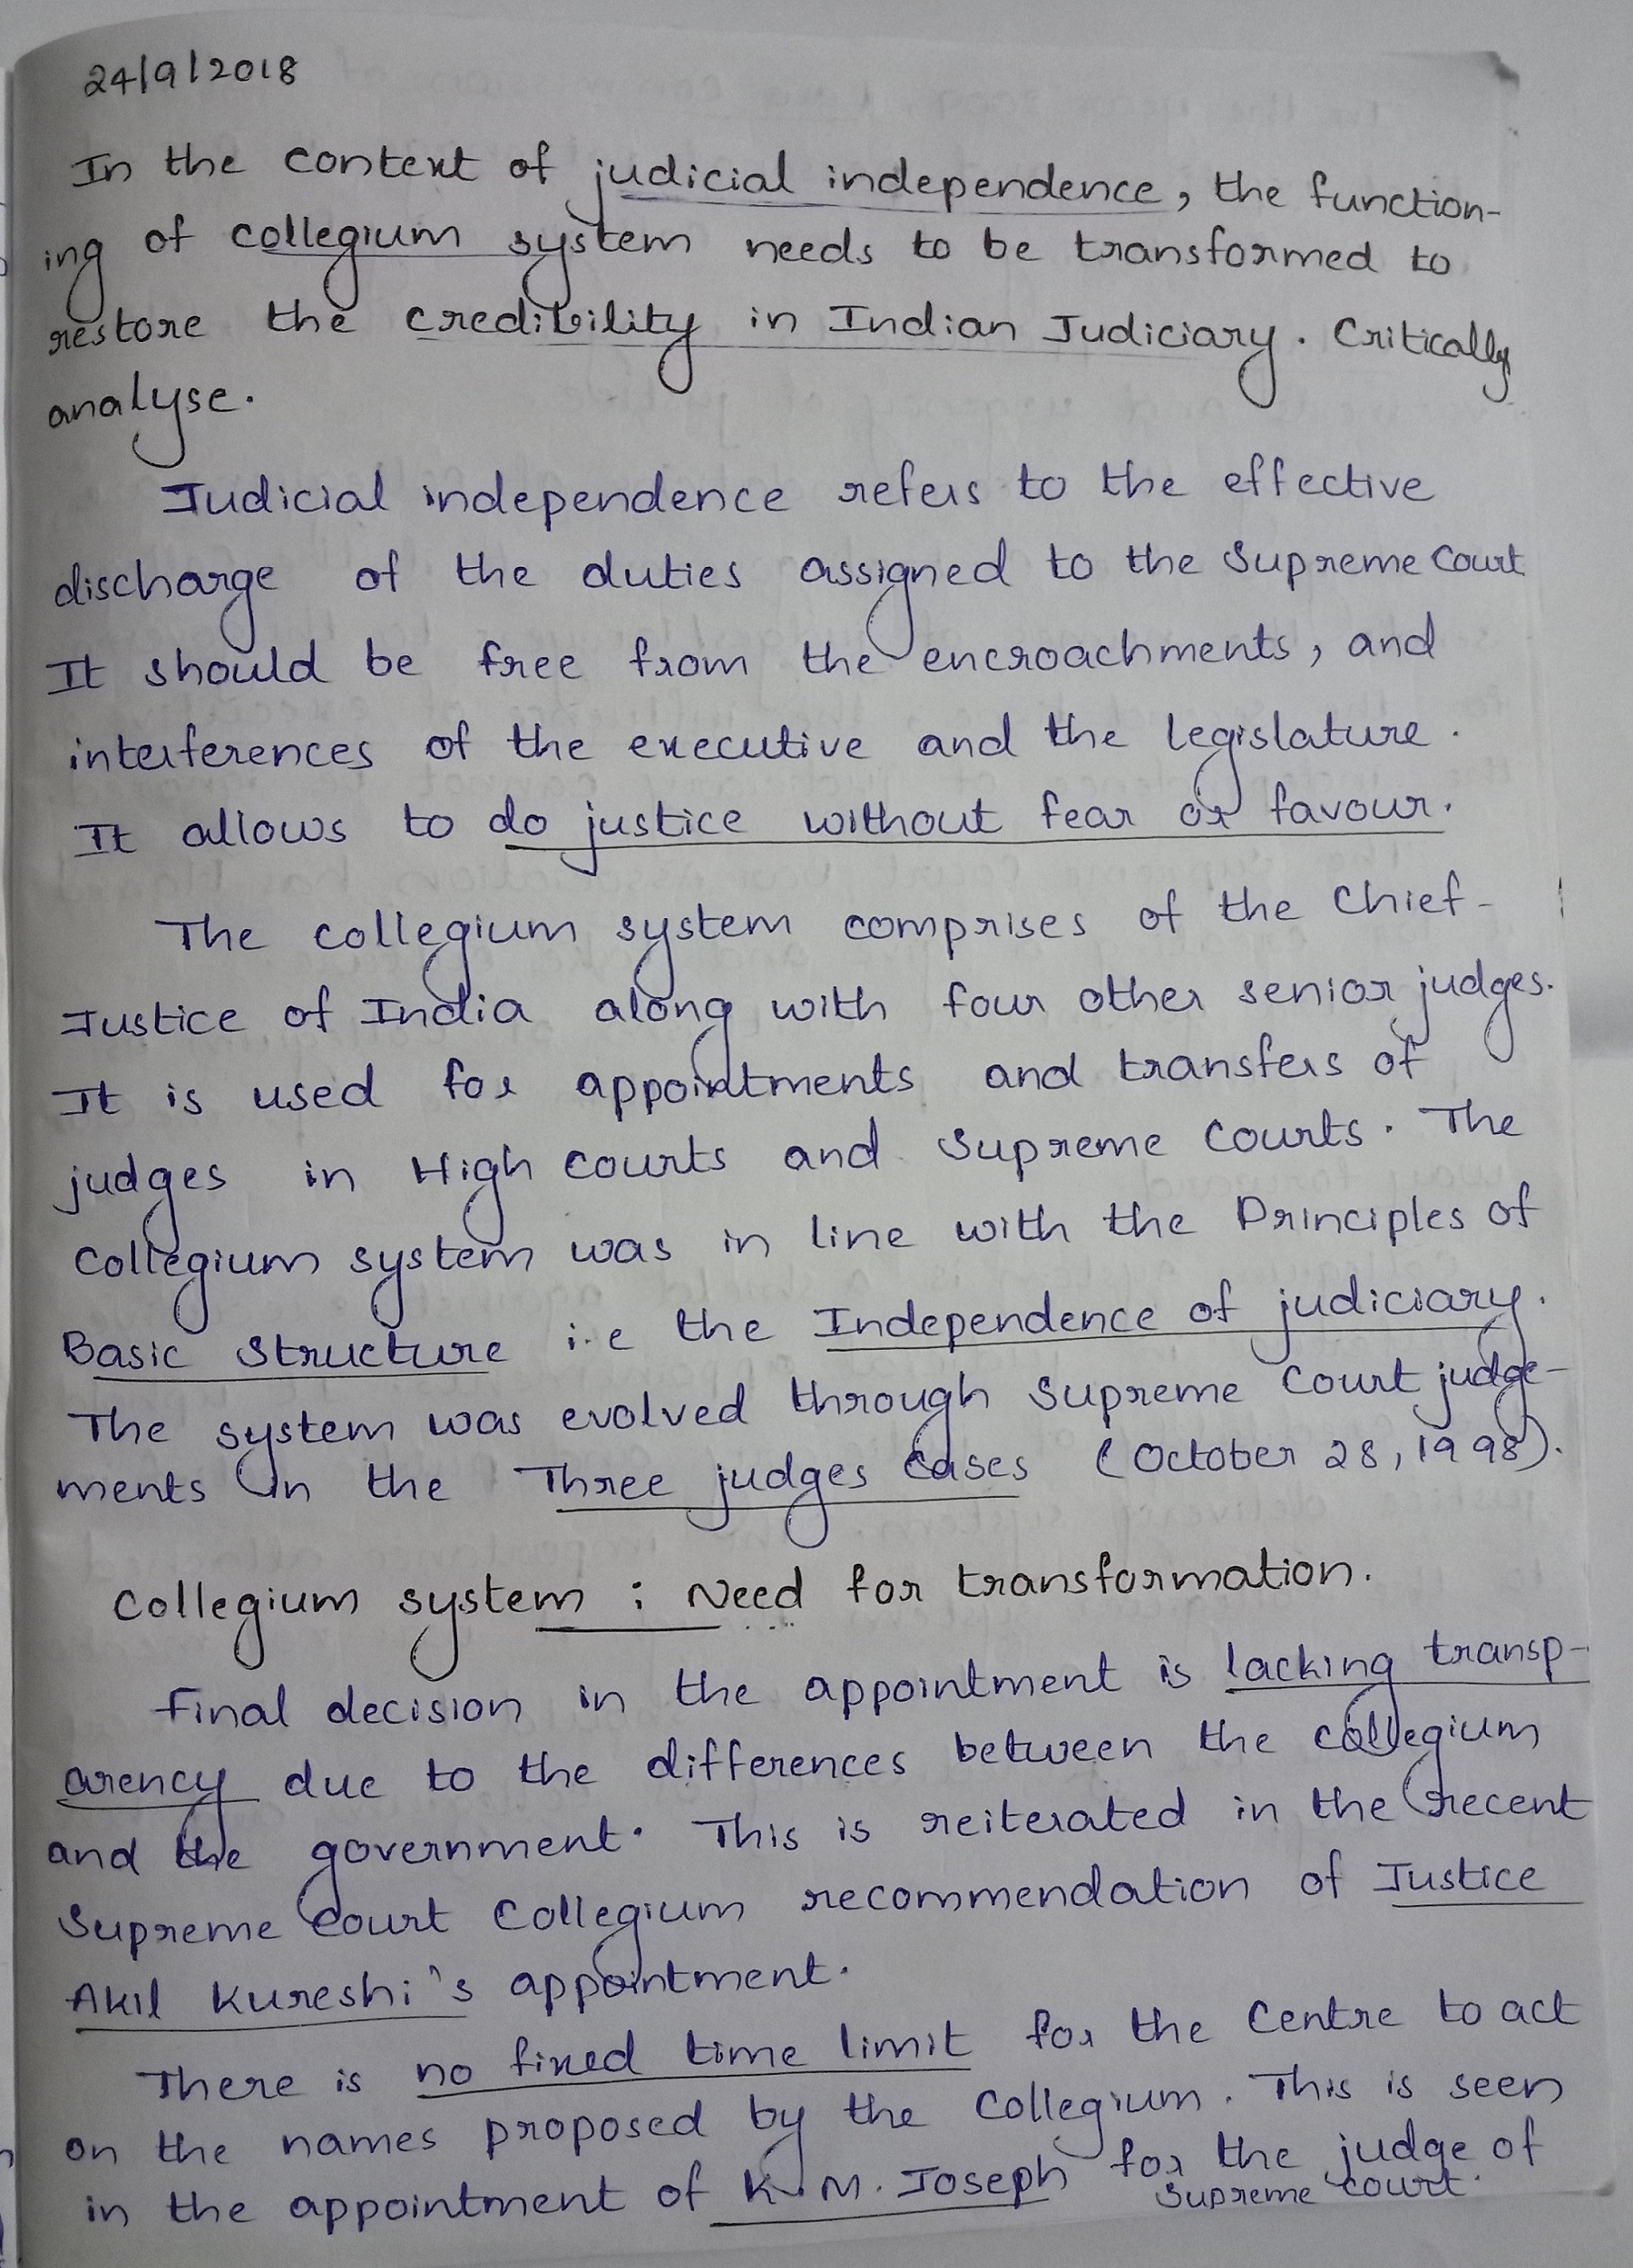 24/9/2018
In the context of judicial independence, the function-
ing of collegium system needs to be transformed to
restore the credibility in Indian Judiciary. Critically
analyse.
Judicial independence refers to the effective
discharge of the duties assigned to the Supreme Court
It should be free from the encroachments, and
interferences of the executive and the legislature.
It allows to do justice without fear or favour.
The collegium system comprises of the Chief-
Justice of India along with four other senior judges.
It is used for appointments and transfers of
judges in High courts and Supreme Courts. The
Collegium system was in line with the Principles of
Basic Structure i.e the Independence of judiciary.
The system was evolved through Supreme Court judge-
ments in the Three judges cases (October 28, 1998).
Collegium system : Need for transformation.
Final decision in the appointment is lacking transp-
arency due to the differences between the collegium
and the government. This is reiterated in the recent
Supreme Court Collegium recommendation of Justice
Akil Kureshi's appointment.
There is no fixed time limit for the Centre to act
on the names proposed by the Collegium. This is seen
in the appointment of K.M. Joseph for the judge of
Supreme Court.